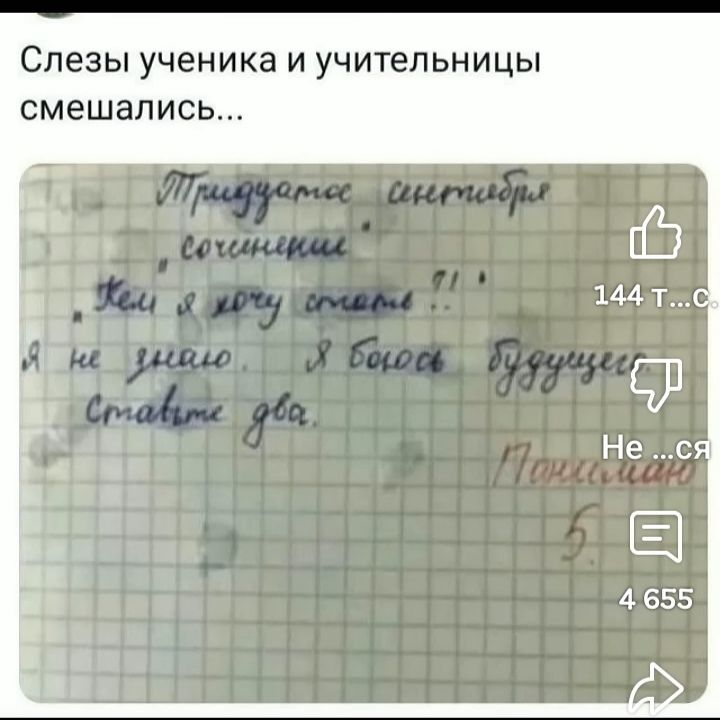 Слезы ученика и учительницы
смешались...
Тридцатое сентября
„Сочинение"
„Кем я хочу стать?!"
Я не знаю. Я боюсь будущего.
Ставьте два.
Понимаю
5.
144 т...с.
Не ...ся
4 655